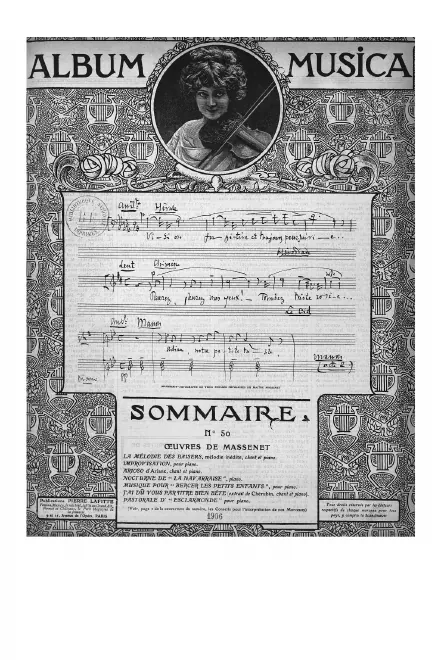 ALBUM MUSICA
Hérode
Vi-si-on fugitive et toujours poursuivi - e
Hérodiade
Pleurez, pleurez mes yeux! - Tombez triste rosé-e...
Le Cid
Manon
Adieu, notre petite ta - ble.
Manon
SOMMAIRE
N° 50
ŒUVRES DE MASSENET
LA MÉLODIE DES BAISERS, mélodie inédite, chant et piano.
IMPROVISATION, pour piano.
ARIOSO d'Ariane, chant et piano.
NOCTURNE DE "LA NAVARRAISE", piano.
MUSIQUE POUR "BERCER LES PETITS ENFANTS", pour piano.
J'AI DÛ VOUS PARAITRE BIEN BÊTE (extrait de Chérubin, chant et piano).
PASTORALE D' "ESCLARMONDE" pour piano.
(Voir, page 2 de la couverture du numéro, les Conseils pour l'interprétation de ces Morceaux)
1906
Publications PIERRE LAFITTE
9 et 11, Avenue de l'Opéra, PARIS
Pour droits réservés par les éditeurs
respectifs de chaque morceau pour tous
pays, y compris la Scandinavie